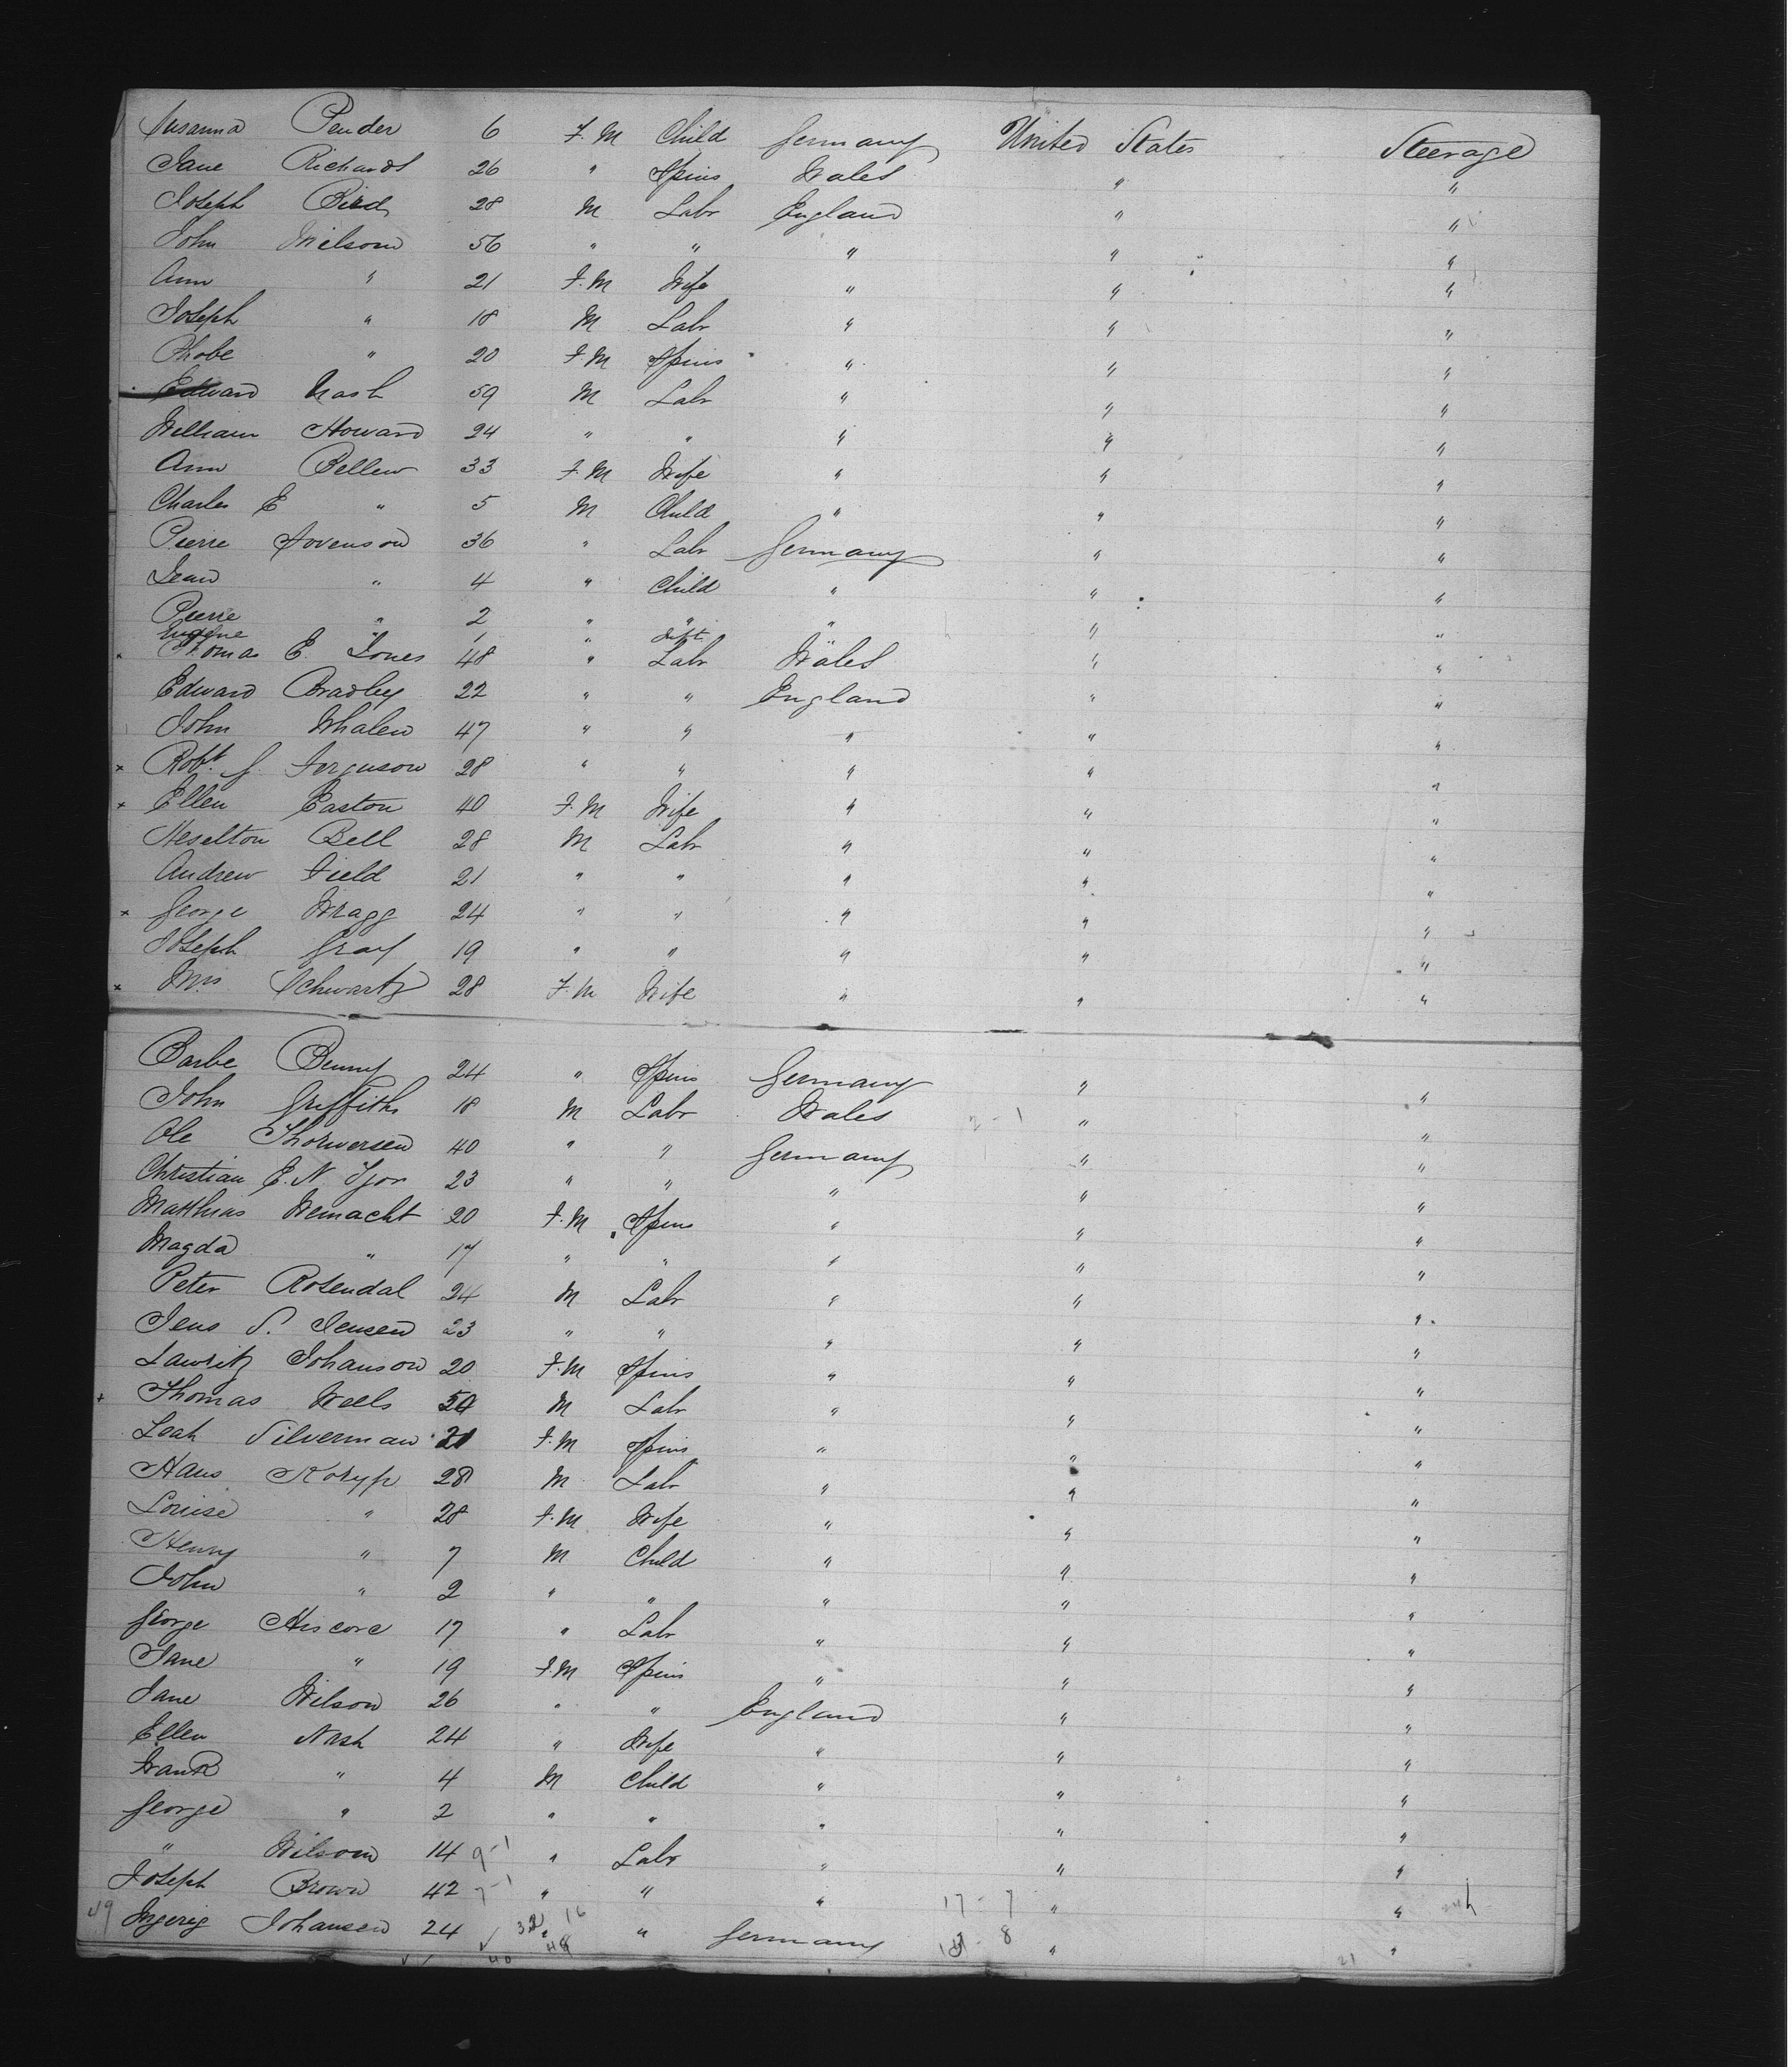 Susanna Pender 6 F.M Child Germany United States Steerage
Jane Richards 26 " Spins Wales " "
Joseph Bird 28 M Labr England " "
John Wilson 56 " " " " "
Ann " 21 F.M Wife " " "
Joseph " 18 M Labr " " "
Phobe " 20 F.M Spins " " "
Edward Nash 59 M Labr " " "
William Howard 24 " " " " "
Ann Bellew 33 F.M Wife " " "
Charles E " 5 M Child " " "
Pierre 36 " Labr Germany " "
Jean " 4 " Child " " "
Pierre " 2 " " " " "
Eugene " 1 " Inft "
Thomas E. Jones 48 " Labr Wales " "
Edward Bradley 22 " " England " "
John Whalen 47 " " " " "
x Robt. J. Ferguson 28 " " " " "
x Ellen Easton 40 F.M Wife " " "
Heselton Bell 28 M Labr " " "
Andrew Field 21 " " " " "
x George Wragg 24 " " " " "
Joseph Gray 19 " " " " "
x Mrs Schwartz 28 F.M Wife " " "
Barbe Benny 24 " Spins Germany " "
John Griffiths 18 M Labr Wales 2-1 " "
Ole Thorwersen 40 " " Germany " "
Christian E. N. 23 " " " " "
Matthias Wemacht 20 F.M Spins " " "
Magda " 17 " " " " "
Peter Rosendal 24 M Labr " " "
Jens S. Jensen 23 " " " " "
Lawritz Johanson 20 F.M Spins " " "
x Thomas Wells 50 M Labr " " "
Leah Silverman 21 F.M Spins " " "
Hans 28 M Labr " " "
Louise " 28 F.M Wife " " "
Henny " 7 M Child " " "
John " 2 " " " " "
George Hiscore 17 " Labr " " "
Jane " 19 F.M Spins " " "
Jane Wilson 26 " " England " "
Ellen Nash 24 " Wife " " "
Frank " 4 M Child " " "
George " 2 " " " " "
" Wilson 14 9-1 " Labr " " "
Joseph Brown 42 7-1 " " " 17-7 " "
49 Ingerig Johansen 24 32 16 " Germany 8 " "
40 48 21